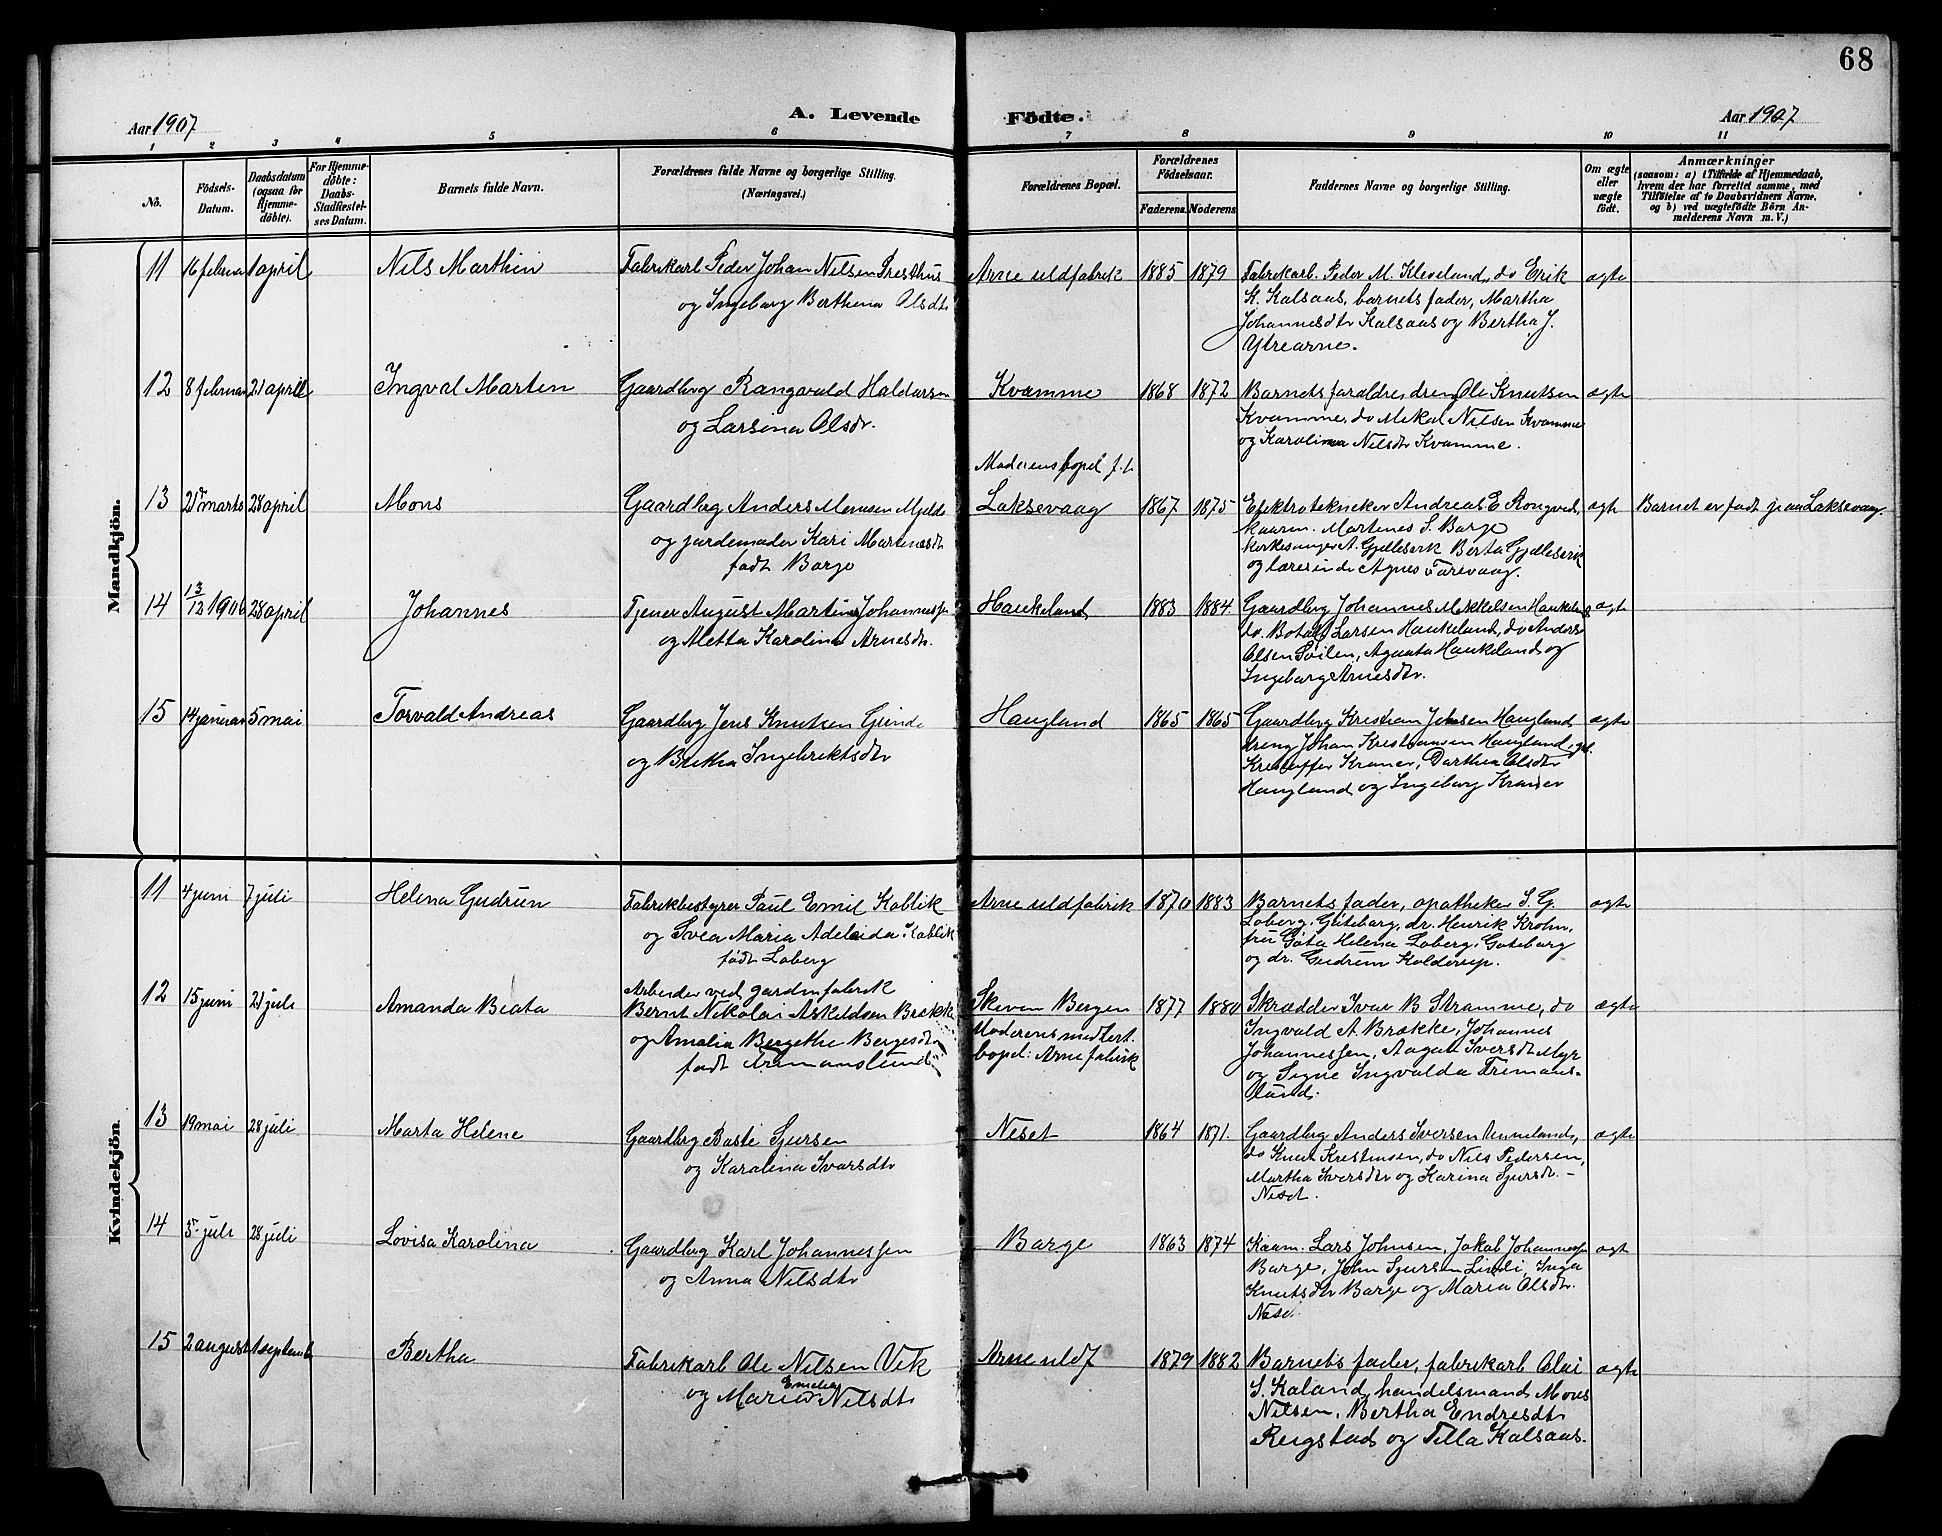 68
Aar 1907
A. Levende Födte.
Aar 1907
1 2 3 4 5 6 7 8 9 10 11
No.
Födsels-
Datum.
Daabsdatum
(ogsaa for
Hjemme-
döbte).
For Hjemme-
döbte:
Daabs-
Stadfæstel-
ses Datum.
Barnets fulde Navn.
Forældrenes fulde Navne og borgerlige Stilling.
(Næringsvei.)
Forældrenes Bopæl.
Forældrenes
Födselsaar.
Faderens. Moderens
Faddernes Navne og borgerlige Stilling.
Om ægte
eller
uægte
født.
Anmærkninger
(saasom: a) i Tilfælde af Hjemmedaab,
hvem der har forrettet samme, med
Tilföielse af to Daabsvidners Navne,
og b) ved uægtefödte Börn An-
melderens Navn m. V.)
Mandkjön.
11 16 februar 1 april Nils Marthin
Fabrikarb Peder Johan Nilsen Presthus
og Ingeborg Berthina Olsdtr
Arne uldfabrik 1885 1879
Fabrikarb. Peder M. Kleveland, do Erik
K. Kalsaas, barnets fader, Martha
Johannesdtr Kalsaas og Bertha J.
Ytrearne.
ægte
12 8 februar 21 april Ingval Martin
Gaardbrg Rangvald Haldorsen
og Larsena Olsdr.
Kvamme 1868 1872
Barnets forældre, dreng Ole Knutsen
Kvamme, do Mikal Nilsen Kvamme
og Karolina Nilsdtr Kvamme.
ægte
13 21 marts 28 april Mons
Gaardbrg Anders Monsen Mjelde
og jordemoder Kari Martinesdtr
født Borge
Moderens bopel f. t.
Laksevaag 1867 1875
Elektrotekniker Andreas E Rongved,
kaarm. Martines S. Borge
kirkesanger A. Gjellesvik Berta Gjellesvik
og lærerinde Agnes Farevaag.
ægte
Barnet er født paa Laksevaag.
14 13/12 1906 28 april Johannes
Tjener August Martin Johannessen
og Metta Karolina Arnesdtr.
Haukeland 1883 1884
Gaardbrg Johannes Mikkelsen Haukeland
do. Botolf Larsen Haukeland, do Anders
Olsen Soilen, Agaata Haukeland og
Ingeborg Arnesdtr.
ægte
15 14 januar 5 mai Torvald Andreas
Gaardbrg Jens Knutsen Grinde
og Britha Ingebrektsdtr
Haugland 1865 1865
Gaardbrg Kristian Johnsen Haugland
dreng Johan Kristiansen Haugland, gd.
Kristoffer Kramer, Dorthea Olsdtr
Haugland og Ingeborg Kramer
ægte
Kvindekjön.
11 4 juni 7 juli Helena Gudrun
Fabrikbestyrer Paul Emil Koblik
og Svea Maria Adelaida Koblik
født Loberg
Arne uldfabrik 1870 1883
Barnets fader, apotheker S. G.
Loberg, Göteborg, dr. Henrik Krohn,
fru Göta Helena Loberg, Goteborg
og dr. Gudrun Kolderup.
ægte
12 15 juni 21 juli Amanda Beata
Arbeider ved gardinfabrik
Bernt Nikolai Askildsen Brække
og Amalia Bergethe Bergesdtr
født Tremanslund
Skiven Bergen
Moderens midlert.
bopel: Arne fabrik
1877 1880
Skrædder Ivar B Stramme, do
Ingvald A. Brække, Johannes
Johannessen, Aagat Iversdtr Myr
og Signe Ingvalda Tremans-
lund.
ægte
13 19 mai 28 juli Marta Helene
Gaardbrg Baste Sjursen
og Karolina Ivarsdtr
Neset 1864 1871.
Gaardbrg Anders Iversen Unneland,
do Knut Kristensen, do Nils Pedersen,
Martha Iversdtr og Karina Sjursdr. –
Neset.
ægte
14 5 juli 28 juli Lovisa Karolina
Gaardbrg Karl Johannessen
og Anna Nilsdtr
Borge 1863 1874
Kaarm. Lars Johnsen, Jakob Johannessen
Borge, John Sjursen Lindi, Inga
Knutsdtr Borge og Maria Olsdtr.
Nese
ægte
15 2 august 1 septemb Bertha
Fabrikarb Ole Nilsen Vik
og Maria Emelia Nilsdtr
Arne uldf 1879 1882
Barnets fader, fabrikarb Olai
S. Kaland, handelsmand Mons
Nilsen, Bertha Endresdtr
Reigstad og Tilla Kalsaas.
ægte